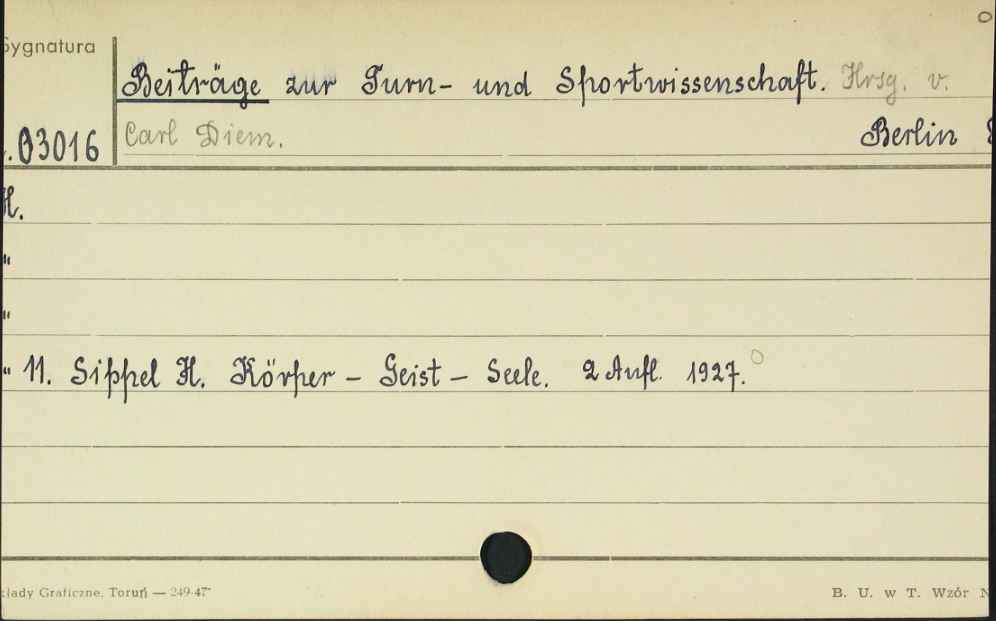 Sygnatura
Beiträge zur Turn- und Sportwissenschaft. Hrsg. v.
.03016 Carl Diem. Berlin
H.
"
"
" 11. Sippel H. Körper – Geist – Seele. 2 Aufl. 1927.
kłady Graficzne, Toruń — 249-47
B. U. w T. Wzór N